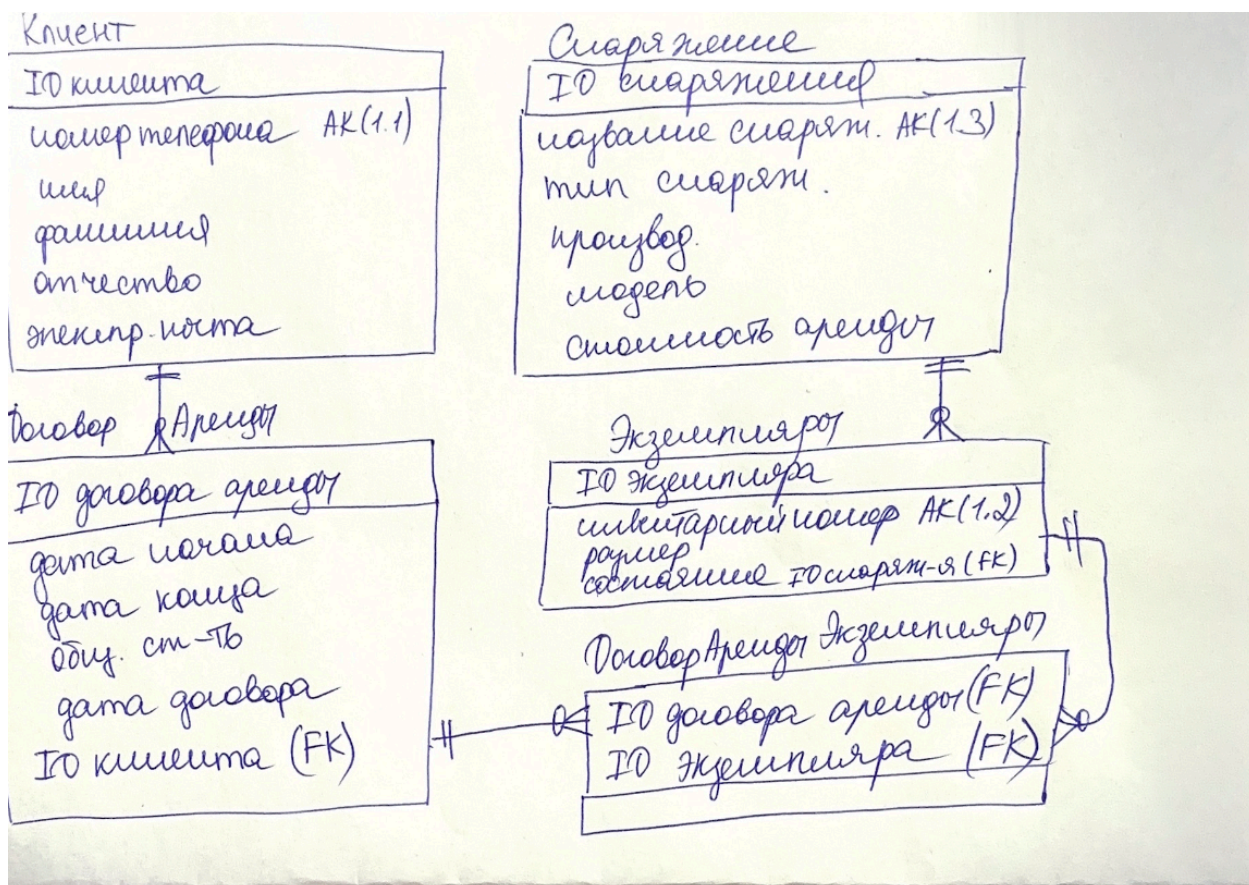 Клиент
ID клиента
номер телефона АК(1.1)
имя
фамилия
отчество
электр. почта
Снаряжение
ID снаряжения
название снаряж. АК(1.3)
тип снаряж.
производ.
модель
стоимость аренды
Договор Аренды
ID договора аренды
дата начала
дата конца
общ. ст-ть
дата договора
ID клиента (FK)
Экземпляры
ID экземпляра
инвентарный номер АК(1.2)
размер
состояние ID снаряж-я (FK)
ДоговорАренды Экземпляры
ID договора аренды (FK)
ID экземпляра (FK)